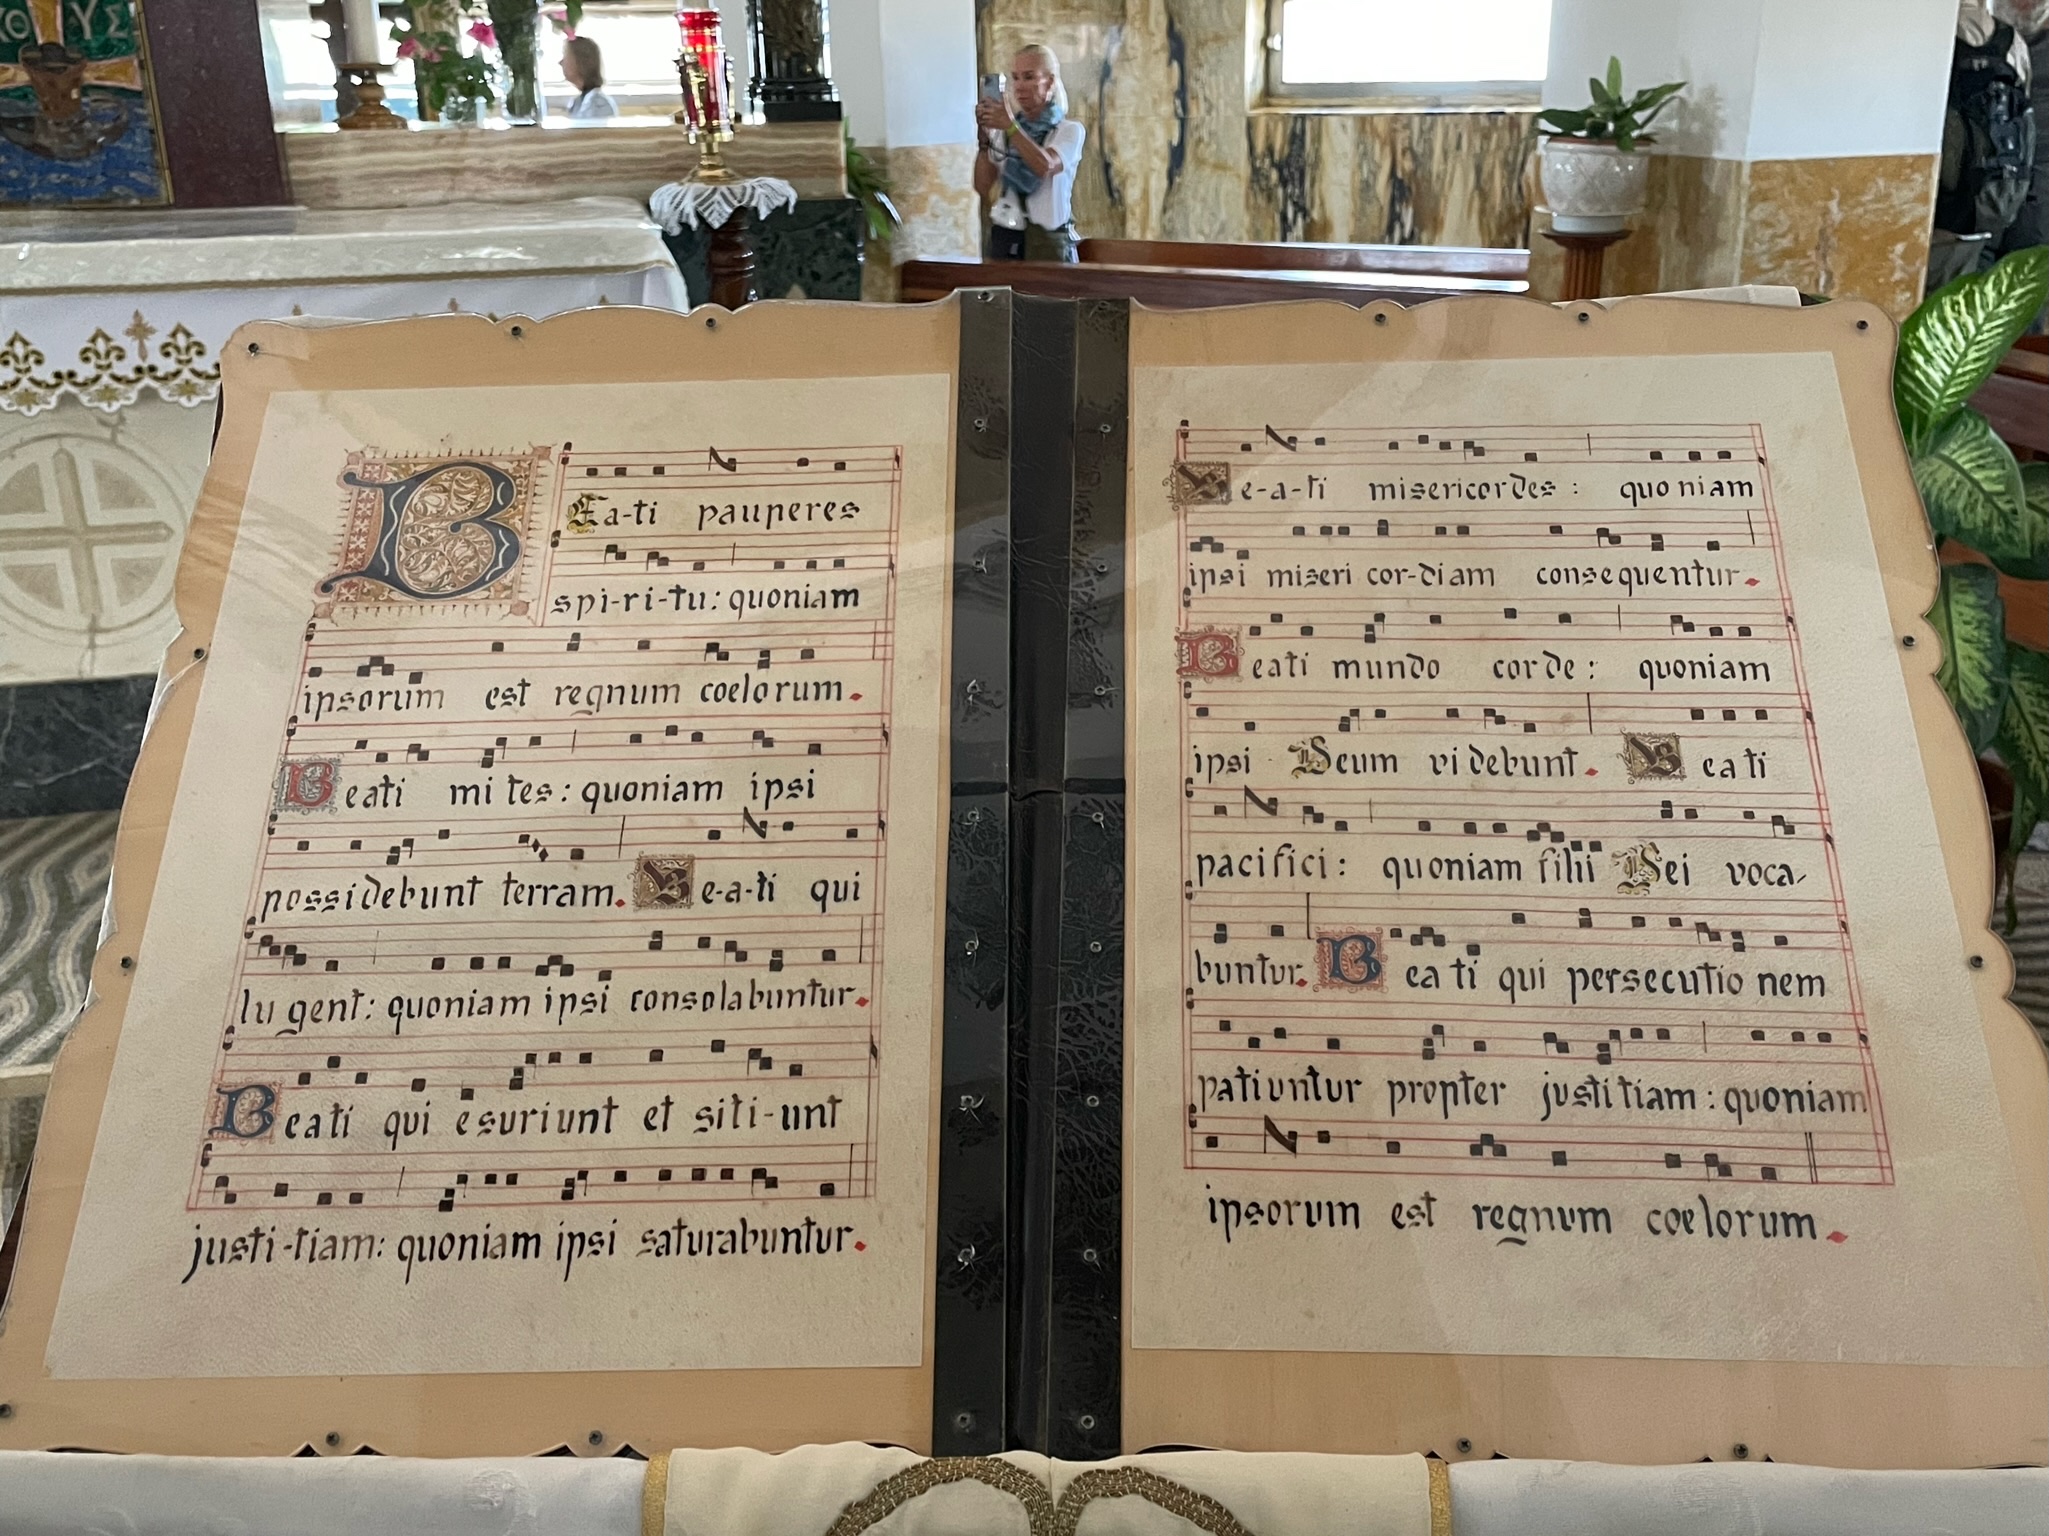 ΥΣ
BEa-ti pauperes
spi-ri-tu: quoniam
ipsorum est regnum coelorum.
Beati mi tes: quoniam ipsi
possidebunt terram. Be-a-ti qui
lu gent: quoniam ipsi consolabuntur.
Beati qui esuriunt et siti-unt
justi-tiam: quoniam ipsi saturabuntur.
Be-a-ti misericordes: quo niam
ipsi miseri cor-diam consequentur.
Beati mundo corde: quoniam
ipsi Deum vi debunt. Beati
pacifici: quoniam filii Dei voca-
buntur. Beati qui persecutio nem
patiuntur propter justi tiam: quoniam
ipsorum est regnum coelorum.